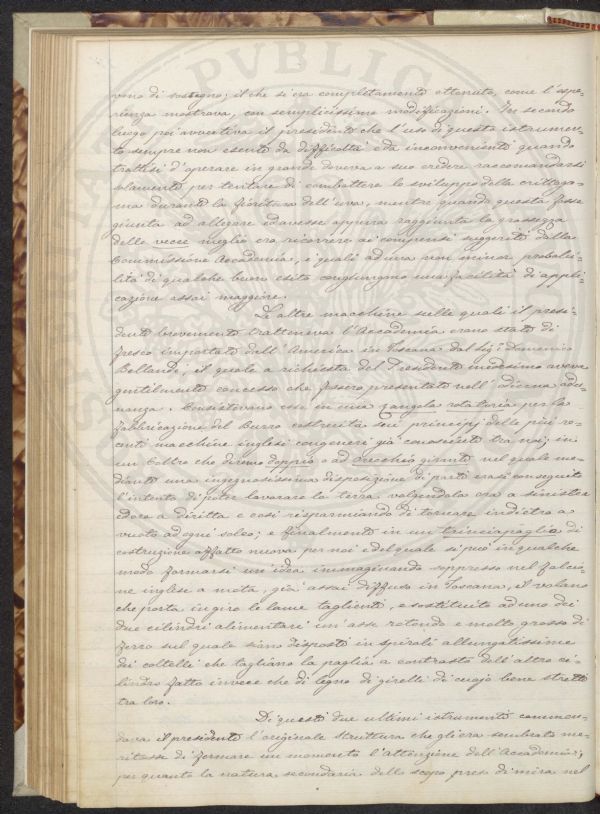 vano di sostegno; il che si era completamente ottenuto, come l'espe-
rienza mostrava, con semplicissime modificazioni. In secondo
luogo poi avvertiva il presidente che l'uso di questo istrumen-
to sempre non esente da difficoltà e da inconvenienti quando
trattisi d'operare in grande doveva a suo credere raccomandarsi
solamente per tentare di combattere lo sviluppo della crittoga-
ma durante la fioritura dell'uva, mentre quando questa fosse
giunta ad allegare ed avesse appena raggiunta la grossezza
delle vecce meglio era ricorrere ai compensi suggeriti dalla
Commissione Accademica, i quali ad una non minor probabi-
lità di qualche buon esito congiungono una facilità di appli-
cazione assai maggiore.
Le altre macchine sulle quali il presi-
dente brevemente tratteneva l'Accademia erano state di
fresco importate dall'America in Toscana dal Sig.r Domenico
Bellandi, il quale a richiesta del Presidente medesimo aveva
gentilmente concesso che fossero presentate nell'odierna adu-
nanza. Consistevano esse in una zangola rotatoria per la
fabbricazione del Burro costruita sui principj delle più re-
centi macchine inglesi congeneri già conosciute tra noi; in
un Coltro che diremo doppio o ad orecchio girante nel quale me-
diante una ingegnosissima disposizione di parti erasi conseguito
l'intento di poter lavorare la terra volgendola ora a sinistra
ed ora a diritta e così risparmiando di tornare indietro a
vuoto ad ogni solco; e finalmente in un trinciapaglia di
costruzione affatto nuova per noi e del quale si può in qualche
modo formarsi un'idea immaginando soppresso nel falcio-
ne inglese a ruota, già assai diffuso in Toscana, il volano
che porta in giro le lame taglienti, e sostituito ad uno dei
due cilindri alimentari un'asse rotondo e molto grosso di
ferro sul quale siano disposti in spirali allungatissime
dei coltelli che tagliano la paglia a contrasto dell'altro ci-
lindro fatto invece che di legno di girelli di cuojo bene stretti
tra loro.
Di questi due ultimi istrumenti commen-
dava il presidente l'originale struttura che gli era sembrato me-
ritasse di fermare un momento l'attenzione dell'Accademia;
per quanto la natura secondaria dello scopo preso di mira nel